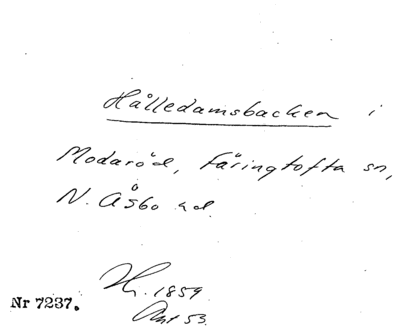 Hålledamsbacken i
Modaröd, Färingtofta sn,
N. Åsbo hd.
1859
53.
Nr 7237.